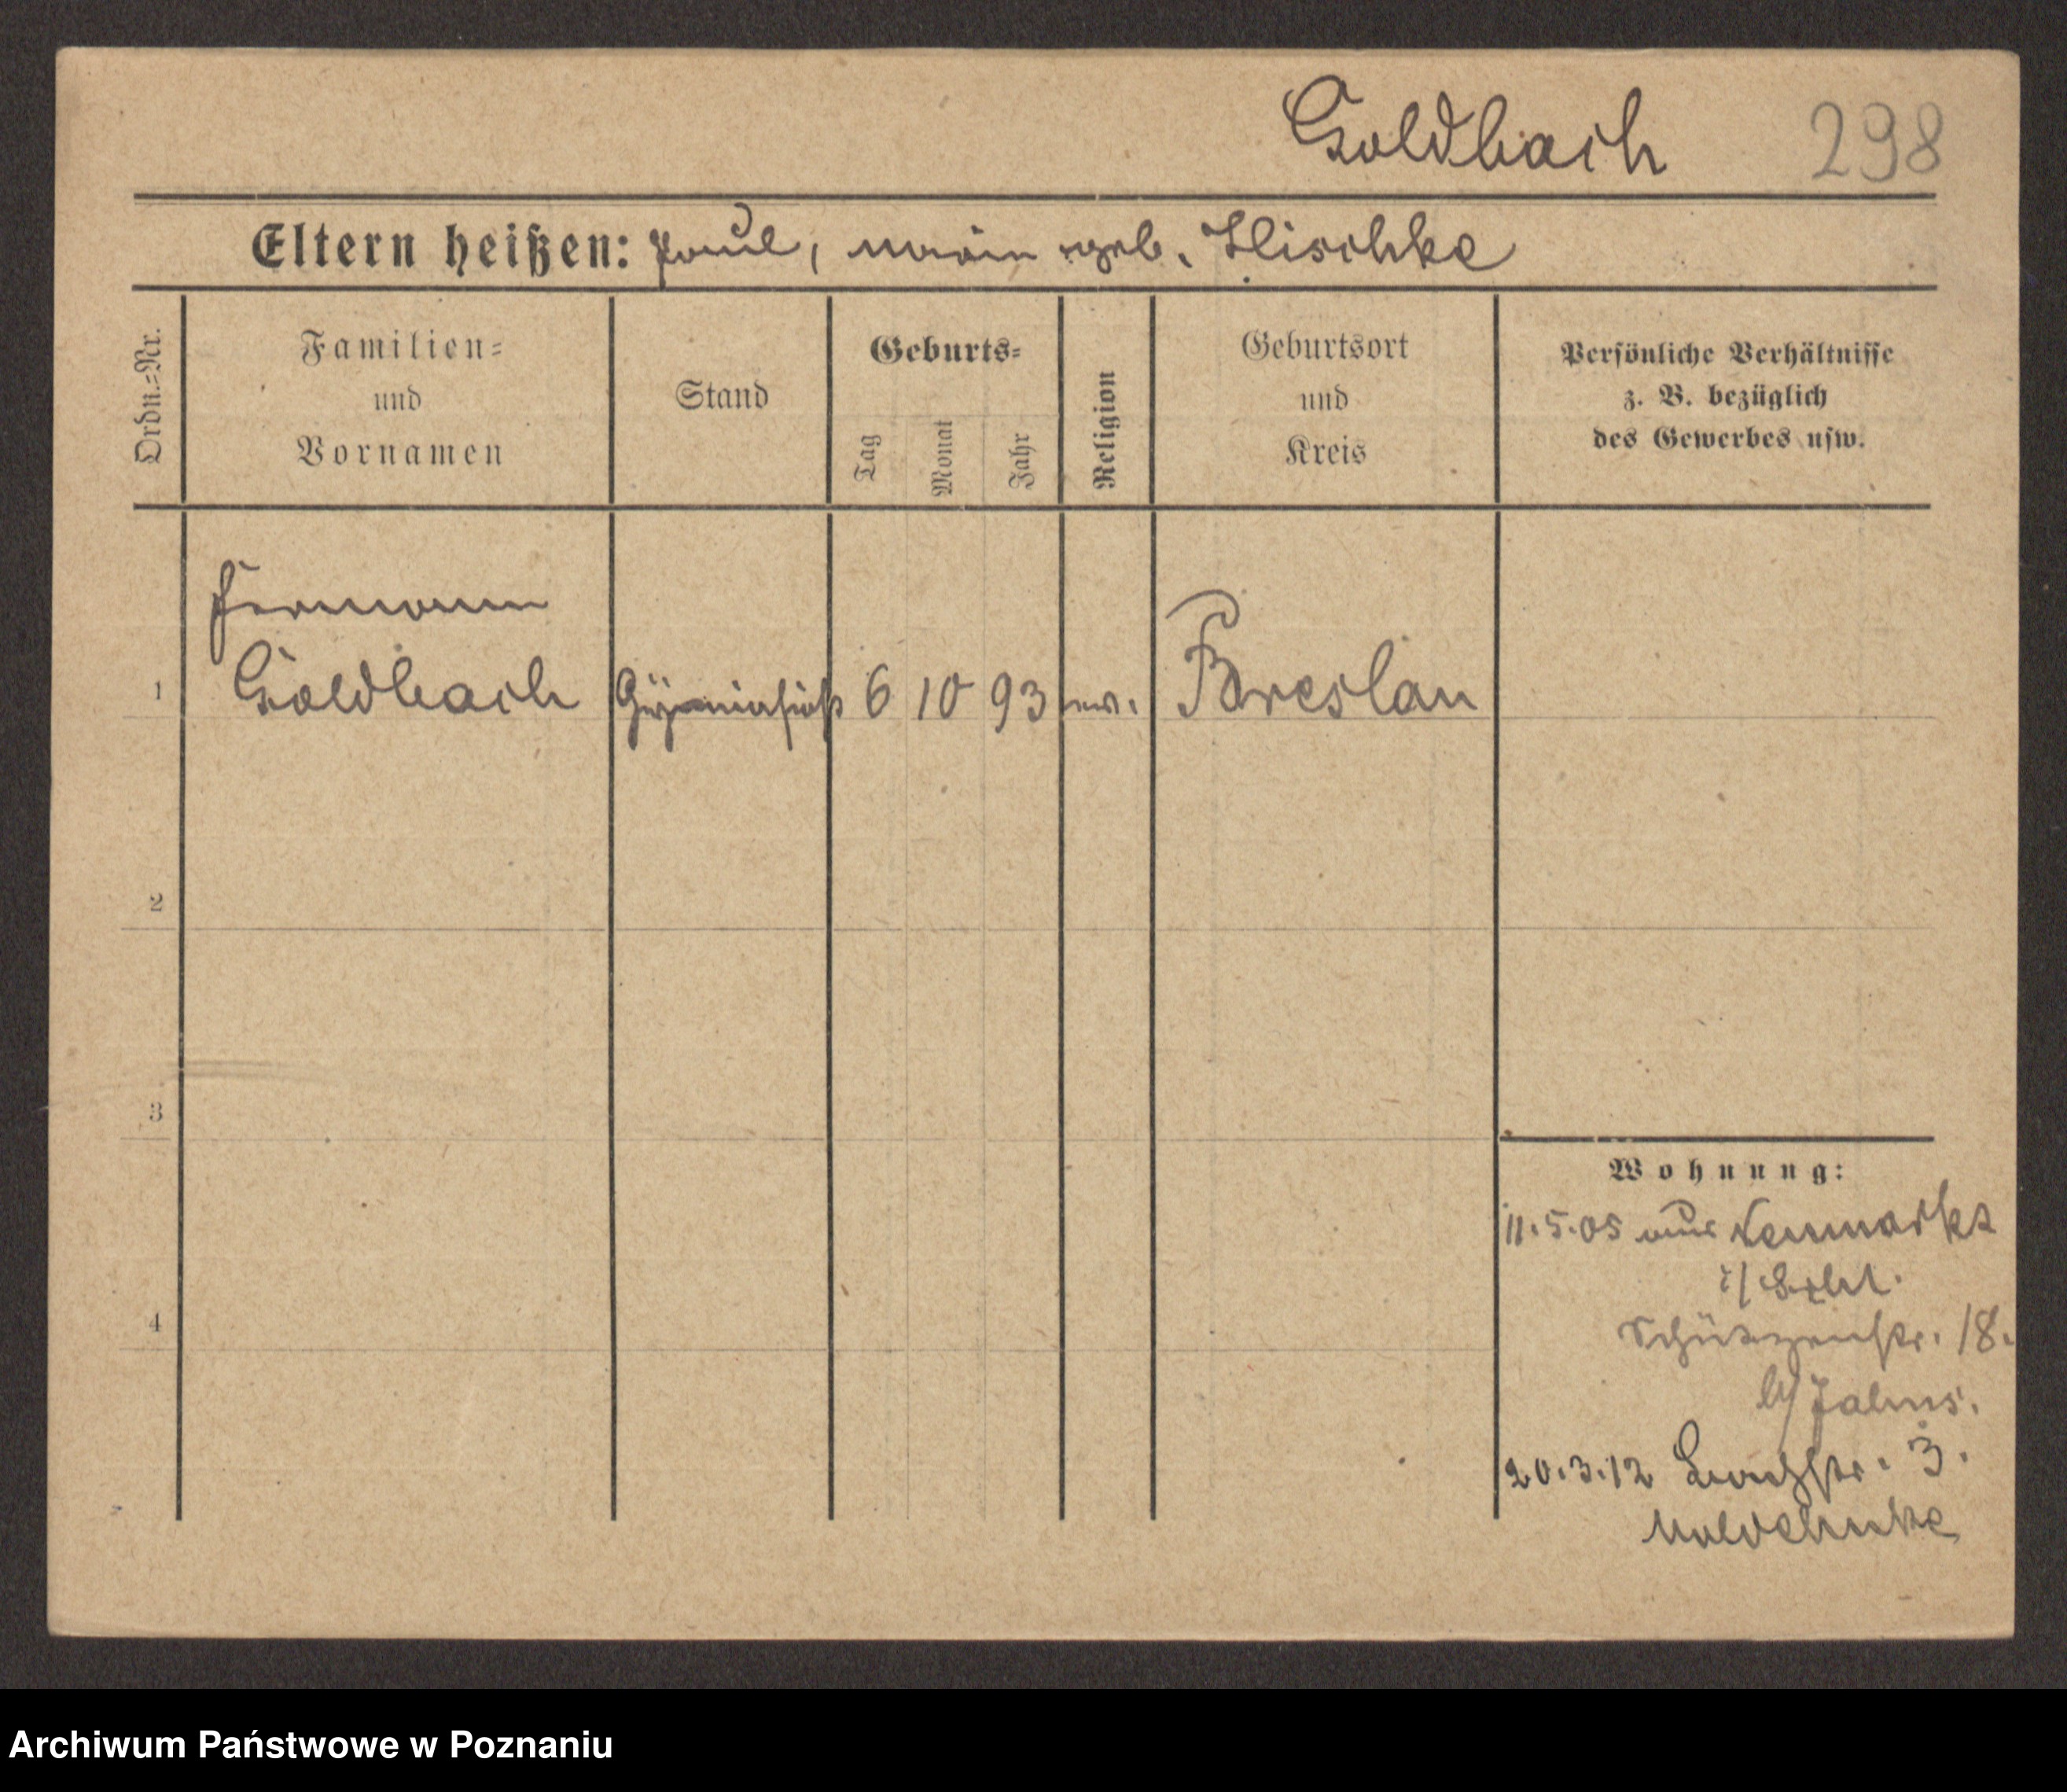 Goldbach 298
Eltern heißen: Paul, Maria geb. Hlischke
Ordn.=Nr.
Familien=
und
Vornamen
Stand
Geburts=
Tag
Monat
Jahr
Religion
Geburtsort
und
Kreis
Persönliche Verhältnisse
z. B. bezüglich
des Gewerbes usw.
Hermann
1 Goldbach 6 10 93 ev. Breslau
2
3
4
Wohnung:
11.5.05 aus Neumarkt
i/Schl.
Schützenstr. 18.
b/
20.3.12 3.
Moldehnke
Archiwum Państwowe w Poznaniu